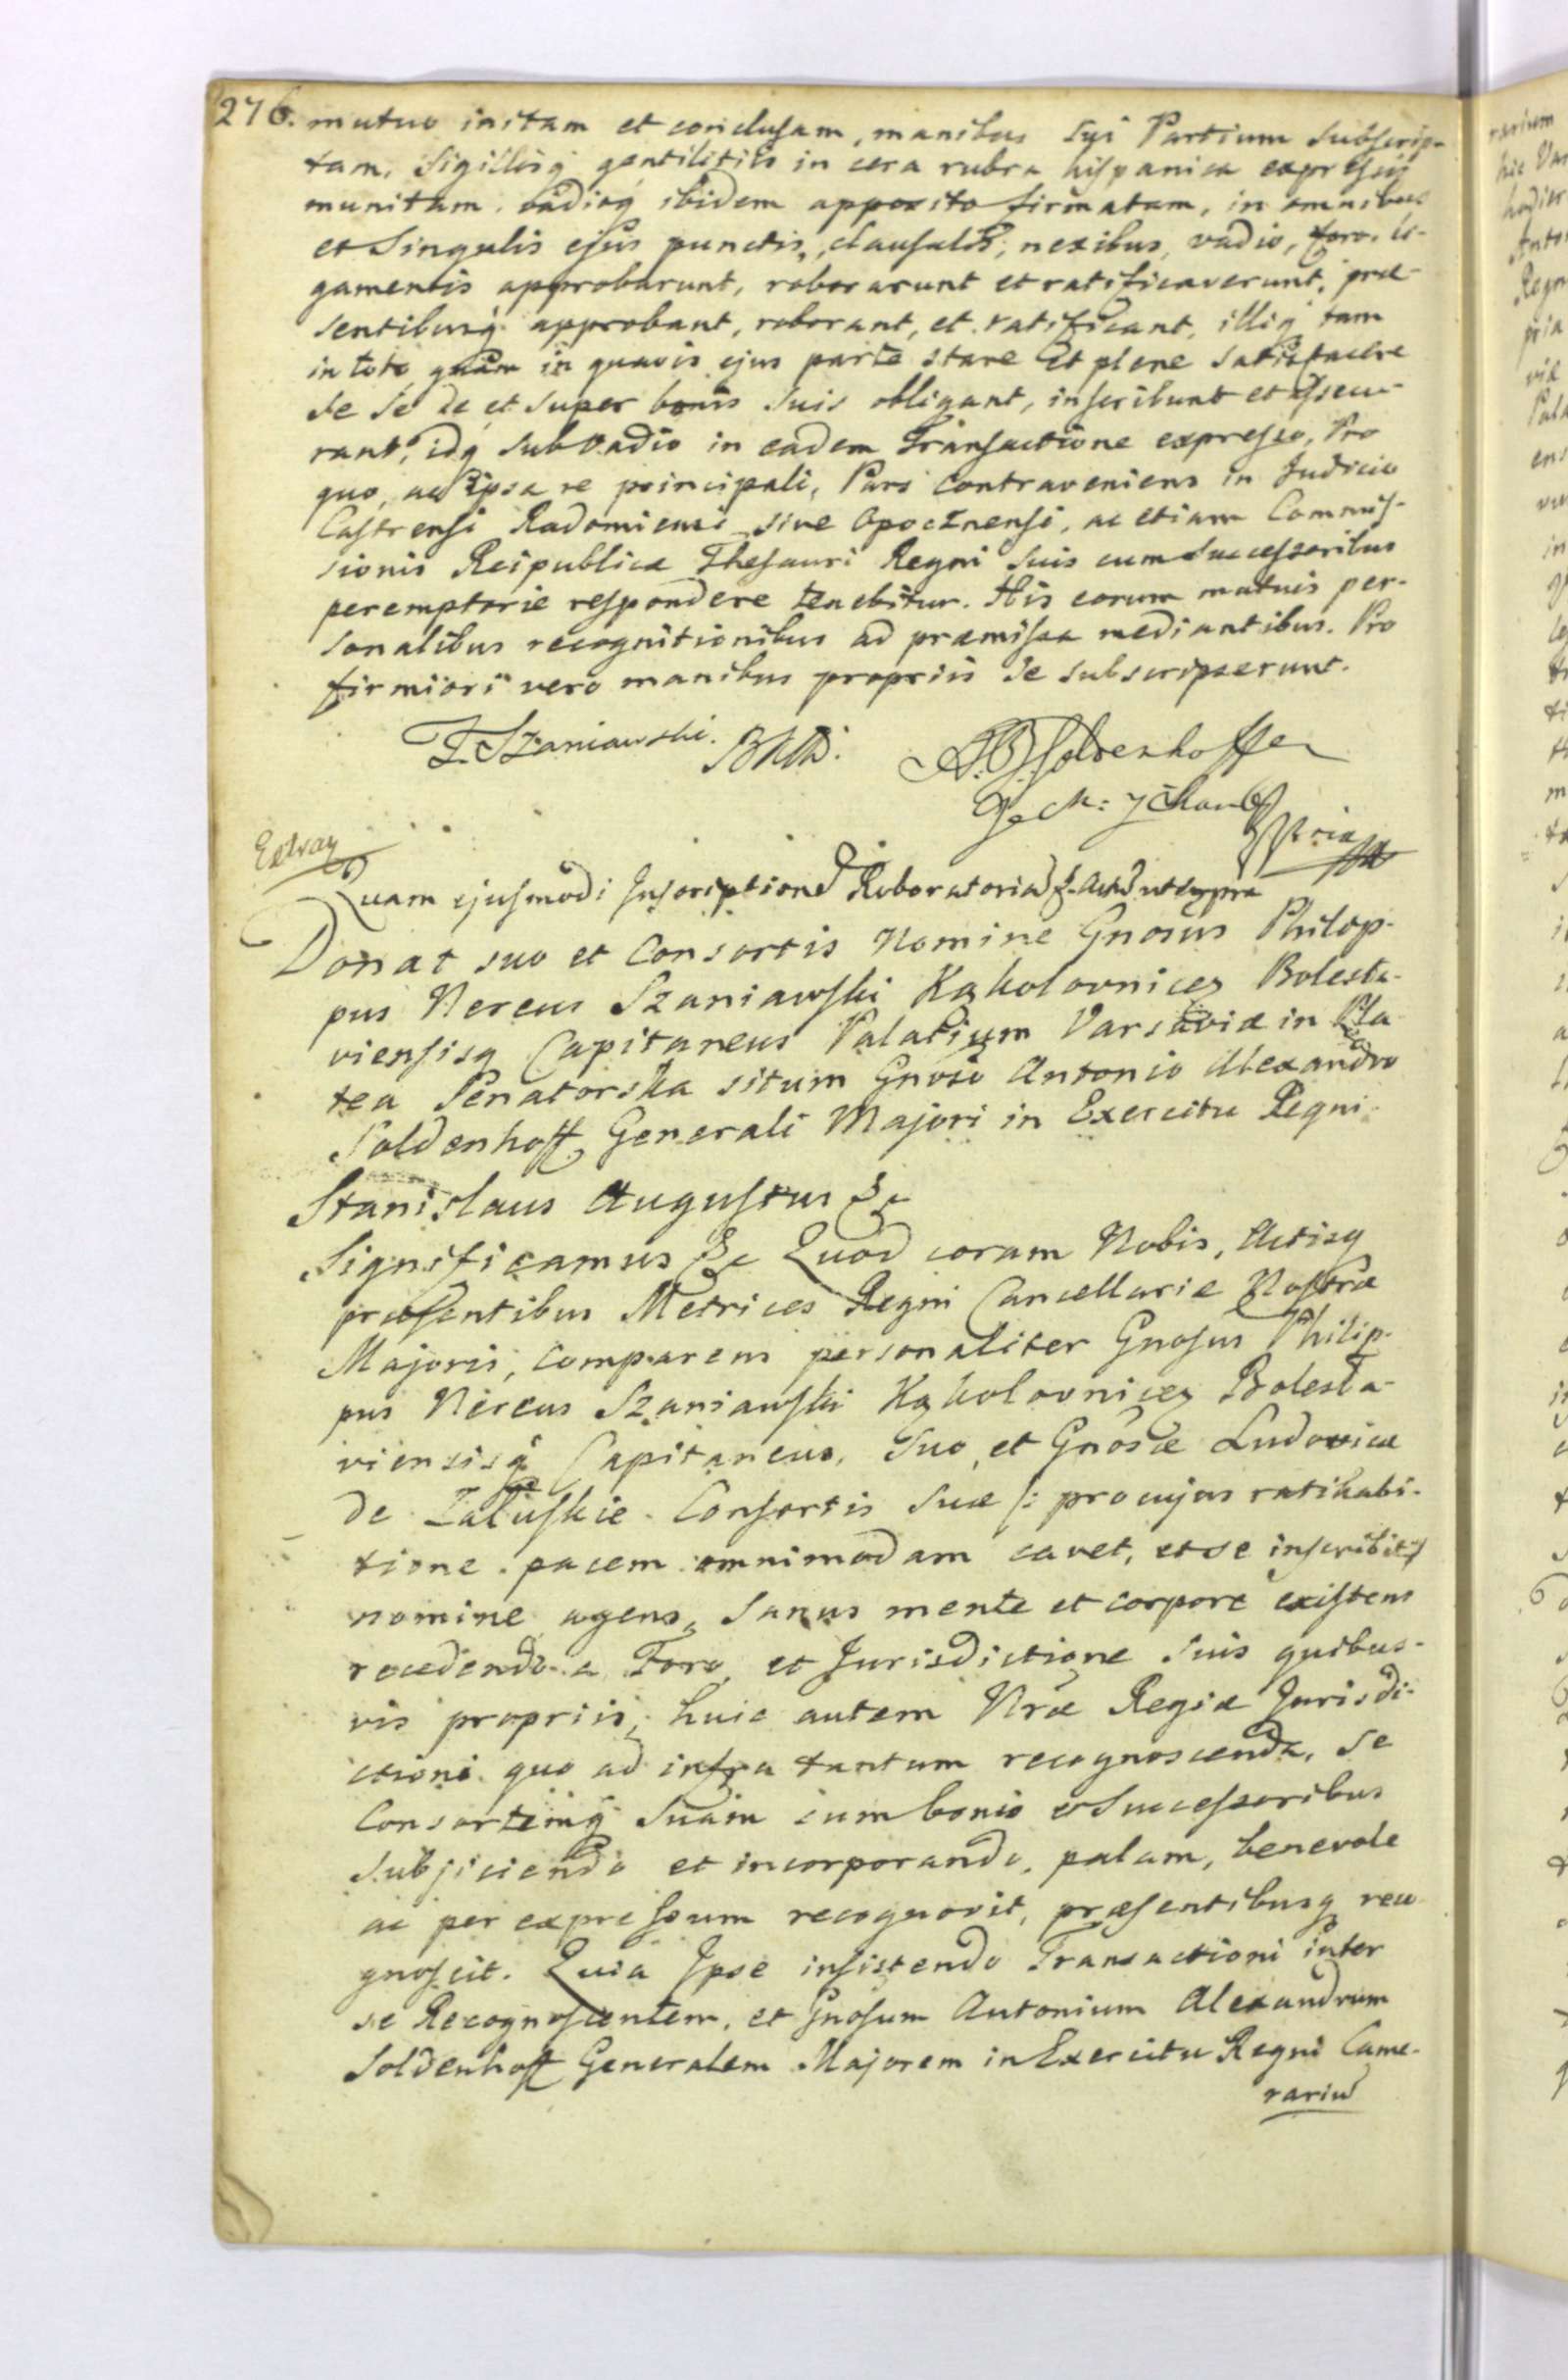 276. mutuo initam et conclusam, manibus sui Partium subscrip-
tam, Sigillisq gentilitiis in cera rubra hispanica expressis
munitam, vadioq ibidem apposito firmatam, in omnibus
et Singulis ejus punctis, clausulis, nexibus, vadio, foro, li-
gamentis approbarunt, roborarunt et ratificaverunt, præ-
sentibusq approbant, roborant, et ratificant, illiq tam
in toto quam in quavis ejus parte stare et plene satisfacere
se se de et super bonis suis obligant, inscribunt et assecu-
rant, idq sub vadio in eadem Transactione expresso, Pro
quo, ac ipsa re principali, Pars contraveniens in Judicio
Castrensi Radomiensi sive Opocznensi, ac etiam Commis-
sionis Reipublicæ Thesauri Regni suis cum Successoribus
peremptorie respondere tenebitur. His eorum mutuis per-
sonalibus recognitionibus ad præmissa mediantibus. Pro
firmiori vero manibus propriis se subscripserunt.
F. Szaniawski. A. Soldenhoff
Extray
Quam ejusmodi Inscriptione Roboratoria &. Act ut supra
Donat suo et Consortis Nomine Gnosus Philip-
pus Nereus Szaniawski Kąkolovnicen Bolesła-
viensisq Capitaneus Palatium Varsaviæ in Pla
tea Senatorska situm Gnoso Antonio Alexandro
Soldenhoff Generali Majori in Exercitu Regni
Stanislaus Augustus &c
Significamus &c Quod coram Nobis, Actisq
præsentibus Metrices Regni Cancellariæ Nostræ
Majoris, comparens personaliter Gnosus Philip-
pus Nereus Szaniawski Kąkolovnicen Bolesła-
viensisq Capitaneus, Suo, et Gnosæ Ludovicæ
de Załuskie Consortis Suæ /: pro cujus ratihabi-
tione pacem omnimodam cavet, et se inscribit :/
nomine agens, Sanus mente et corpore existens
recedendo a Foro et Jurisdictione Suis quibus-
vis propriis, huic autem Nræ Regiæ Jurisdi-
ctioni quo ad infra tantum recognoscenda, Se
Consortemq Suam cum bonis et Successoribus
Subjiciendo et incorporando, palam, benevole
ac per expressum recognovit, præsentibusq reco
gnoscit. Quia Ipse insistendo Transactioni inter
se Recognoscentem, et Gnosum Antonium Alexandrum
Soldenhoff Generalem Majorem in Exercitu Regni Came-
rariu